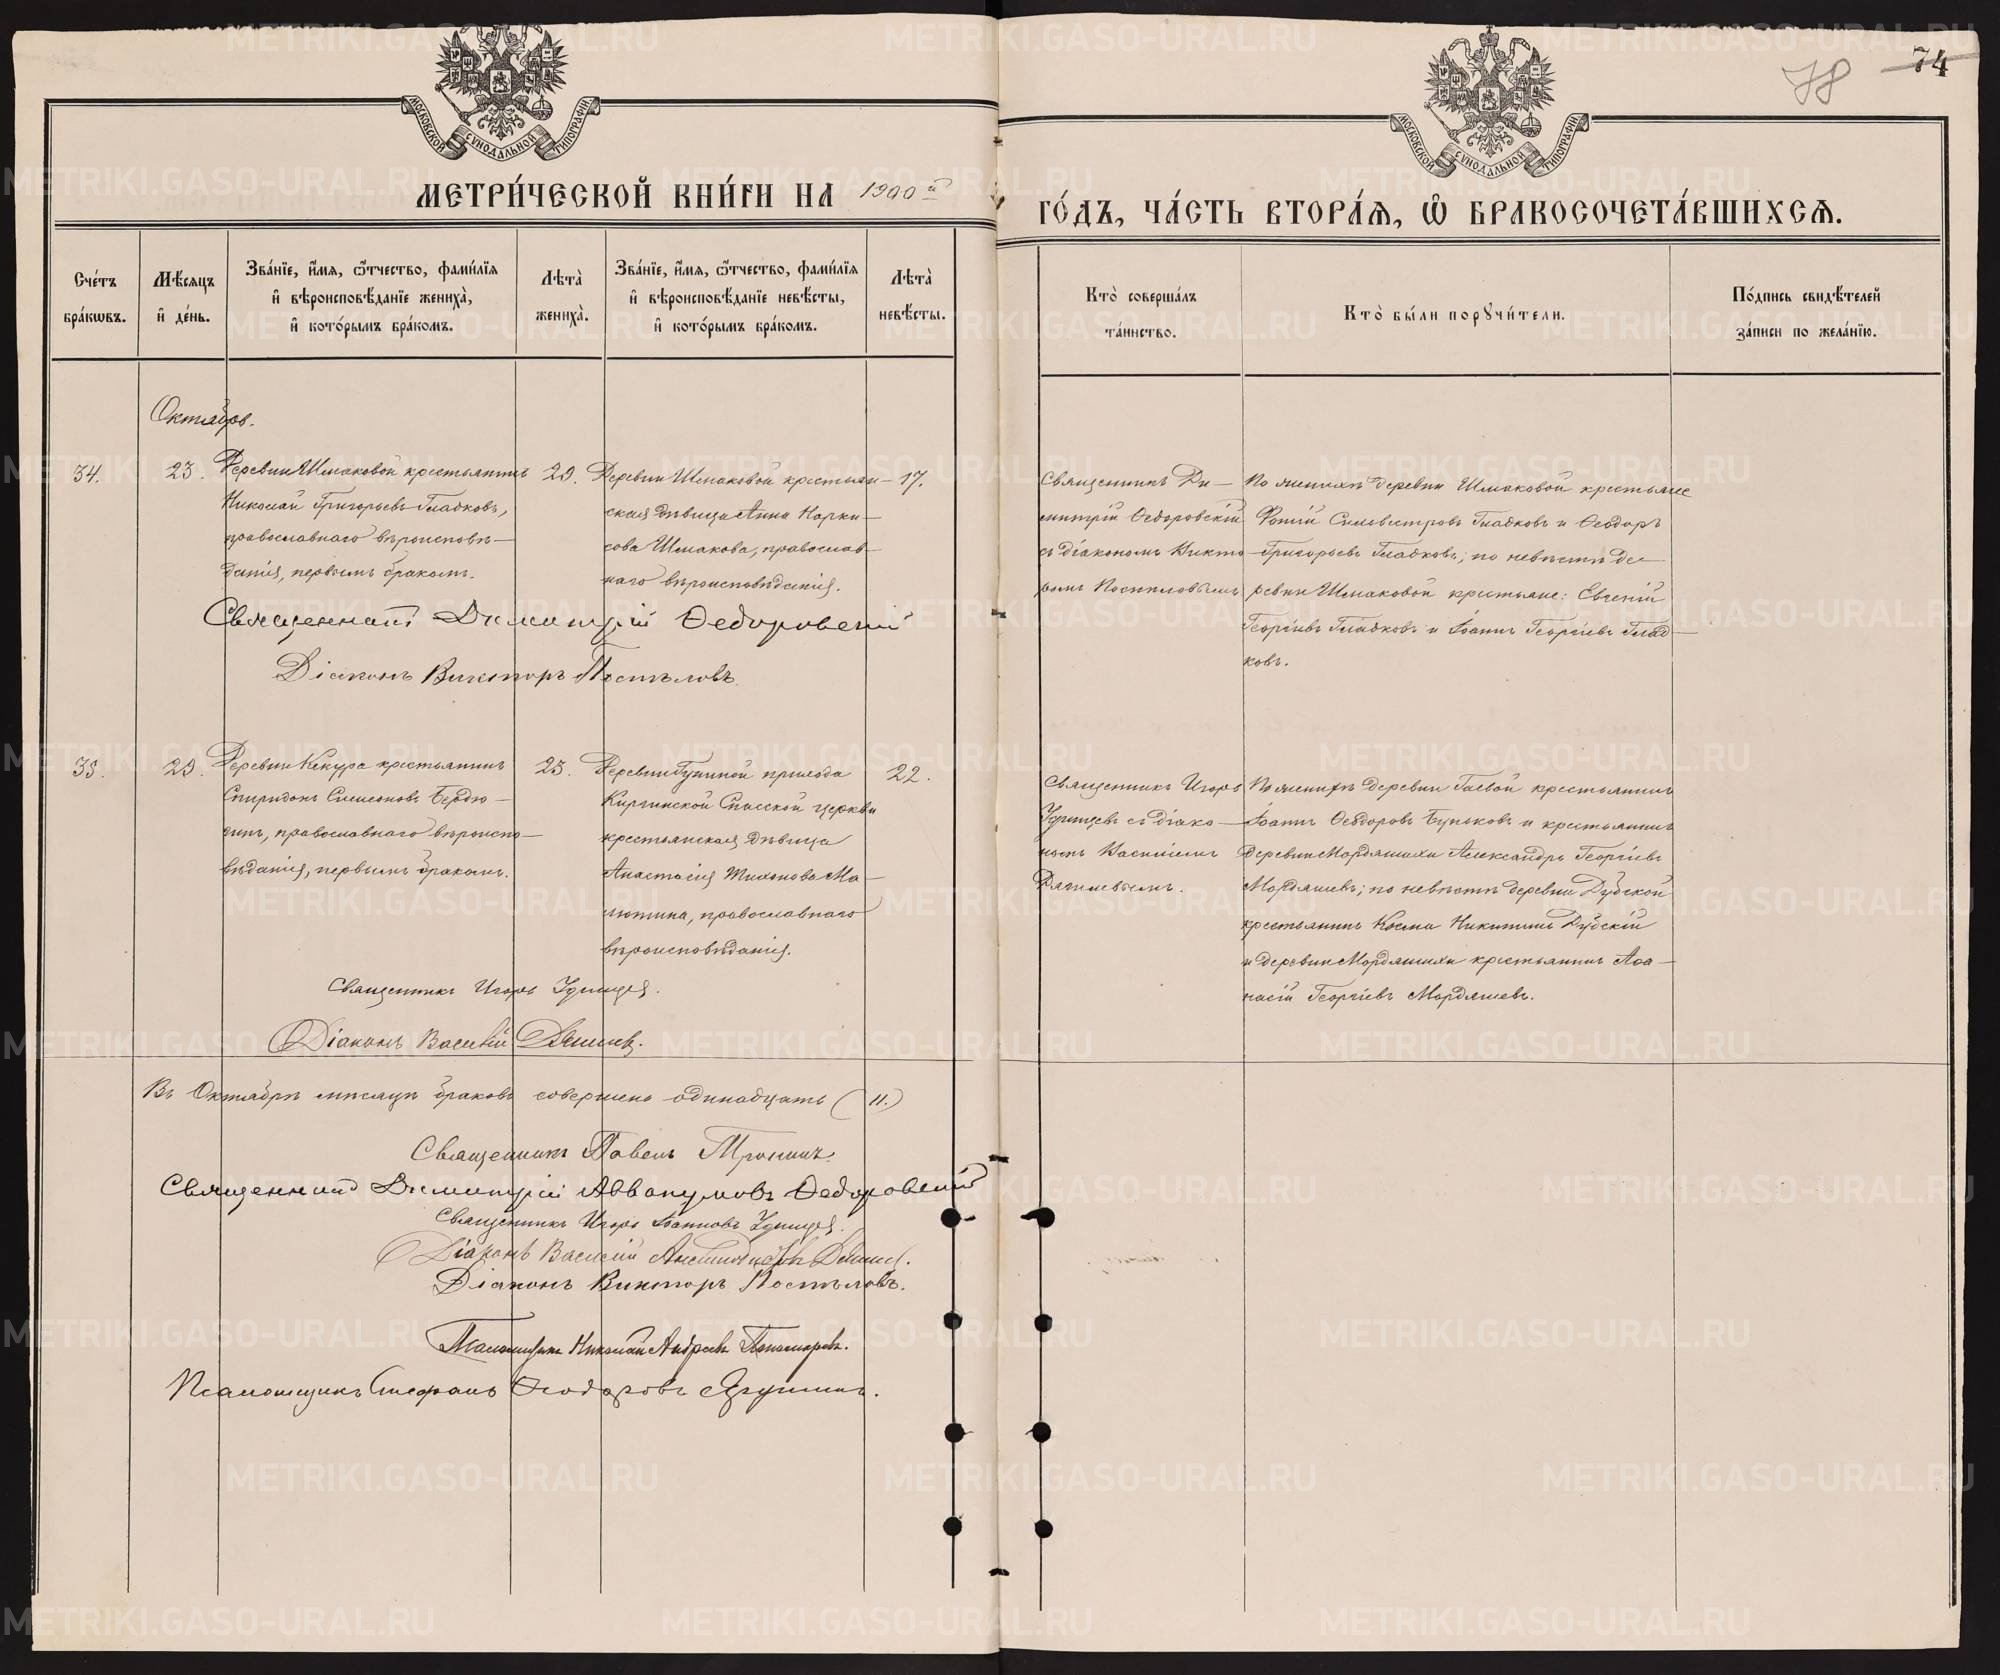 МОСКОВСКОЙ СѴНОДАЛЬНОЙ ТИПОГРАФІИ
МОСКОВСКОЙ СѴНОДАЛЬНОЙ ТИПОГРАФІИ
74
78
МЕТРИ́ЧЕСКОЙ КНИ́ГИ НА 1900 й
ГО́ДЪ, ЧА́СТЬ ВТОРА́Ѧ, Ѽ БРАКОСОЧЕТА́ВШИХСѦ.
Сче́тъ бра́кѡвъ.
Мѣ́сѧцъ и҆ де́нь.
Зва́нїе, и҆́мѧ, ѻ҆́тчество, фами́лїѧ и҆ вѣроисповѣ́данїе жениха̀, и҆ кото́рымъ бра́комъ.
Лѣта̀ жениха̀.
Зва́нїе, и҆́мѧ, ѻ҆́тчество, фами́лїѧ и҆ вѣроисповѣ́данїе невѣ́сты, и҆ кото́рымъ бра́комъ.
Лѣта̀ невѣ́сты.
Кто̀ соверша́лъ та́инство.
Кто̀ бы́ли порꙋчи́тели.
По́дпись свидѣ́телей за́писи по жела́нїю.
Октябрь.
34.
23.
Деревни Шмаковой крестьянинъ
Николай Григорьевъ Гладковъ,
православнаго вѣроисповѣ-
данія, первымъ бракомъ.
29.
Деревни Шмаковой крестьян-
ская дѣвица Анна Нарки-
сова Шмакова, православ-
наго вѣроисповѣданія.
17.
Священникъ Ди-
митрій Ѳедоровскій
съ діакономъ Викто-
ромъ Поспѣловымъ
По женихѣ деревни Шмаковой крестьяне
Фотій Сильвестровъ Гладковъ и Ѳеодоръ
Григорьевъ Гладковъ; по невѣстѣ де-
ревни Шмаковой крестьяне: Евгеній
Георгіевъ Гладковъ и Іоаннъ Георгіевъ Глад-
ковъ.
Священникъ Димитрій Ѳедоровскій
Діаконъ Викторъ Поспѣловъ.
35.
29.
Деревни Кекура крестьянинъ
Спиридонъ Симеоновъ Бердю-
гинъ, православнаго вѣроиспо-
вѣданія, первымъ бракомъ.
23.
Деревни Гуниной прихода
Киргинской Спасской церкви
крестьянская дѣвица
Анастасія Тихонова Ма-
лютина, православнаго
вѣроисповѣданія.
22.
Священникъ Игорь
Удинцевъ съ діако-
номъ Василіемъ
Дягилевымъ.
По женихѣ деревни Гаевой крестьянинъ
Іоаннъ Ѳеодоровъ Буньковъ и крестьянинъ
деревни Мордяшихи Александръ Георгіевъ
Мордяшевъ; по невѣстѣ деревни Дубской
крестьянинъ Косма Никитинъ Дубскій
и деревни Мордяшихи крестьянинъ Аѳа-
насій Георгіевъ Мордяшевъ.
Священникъ Игорь Удинцев.
Діаконъ Василій
Въ Октябрѣ мѣсяцѣ браковъ совершено одинадцать (11.)
Священникъ Павелъ
Священникъ Димитрій Аввакумовъ Ѳедоровскій
Священникъ Игорь Іоанновъ Удинцев.
Діаконъ Василій
Діаконъ Викторъ Поспѣловъ.
Псаломщикъ Николай Андреевъ Пономаревъ.
Псаломщикъ Стефанъ Ѳеодоровъ